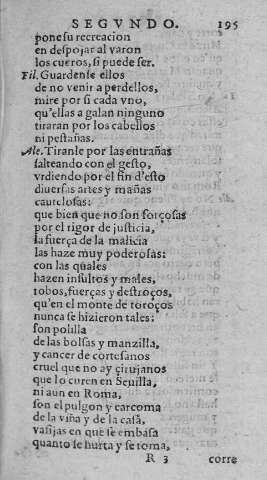 SEGVNDO. 195
pone su recreacion
en despojar al varon
los cueros, si puede ser.
Fil. Guardense ellos
de no venir a perdellos,
mire por si cada vno,
qu'ellas a galan ninguno
tiraran por los cabellos
ni pestañas.
Ale. Tiranle por las entrañas
salteando con el gesto,
vrdiendo por el fin d'esto
diuersas artes y mañas
cautelosas:
que bien que no son forçosas
por el rigor de justicia,
la fuerça de la malicia
las haze muy poderosas:
con las quales
hazen insultos y males,
robos, fuerças y destroços,
qu'en el monte de toroços
nunca se hizieron tales:
son polilla
de las bolsas y manzilla,
y cancer de cortesanos
cruel que no ay çirujanos
que lo curen en Seuilla,
ni aun en Roma,
son el pulgon y carcoma
de la viña y de la casa,
vasijas en que se embasa
quanto se hurta y se toma,
R 3 corre